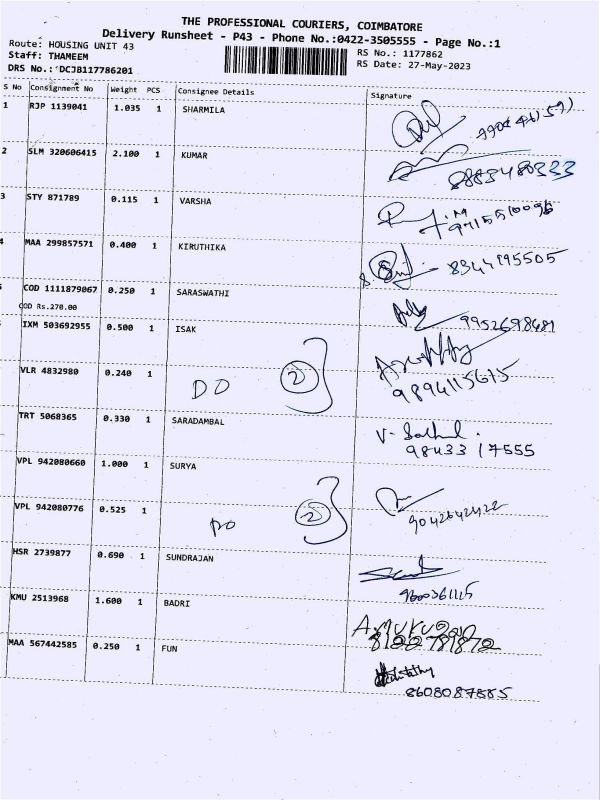 THE PROFESSIONAL COURIERS, COIMBATORE
Delivery Runsheet - P43 - Phone No.:0422-3505555 - Page No.:1
Route: HOUSING UNIT 43
Staff: THAMEEM
DRS No.: DCJB117786201
RS No.: 1177862
RS Date: 27-May-2023
S No Consignment No Weight PCS Consignee Details Signature
1 RJP 1139041 1.035 1 SHARMILA
2 SLM 320606415 2.100 1 KUMAR
8883480333
3 STY 871789 0.115 1 VARSHA
4 MAA 299857571 0.400 1 KIRUTHIKA
8344195505
COD 1111879067 0.250 1 SARASWATHI
COD Rs.270.00
9952698681
IXM 503692955 0.500 1 ISAK
9894115615
VLR 4832980 0.240 1 DO 2
TRT 5068365 0.330 1 SARADAMBAL
98433 17555
VPL 942080660 1.000 1 SURYA
9042642422
VPL 942080776 0.525 1 DO 2
HSR 2739877 0.690 1 SUNDRAJAN
9600361115
KMU 2513968 1.600 1 BADRI
8122781872
MAA 567442585 0.250 1 FUN
8608087885